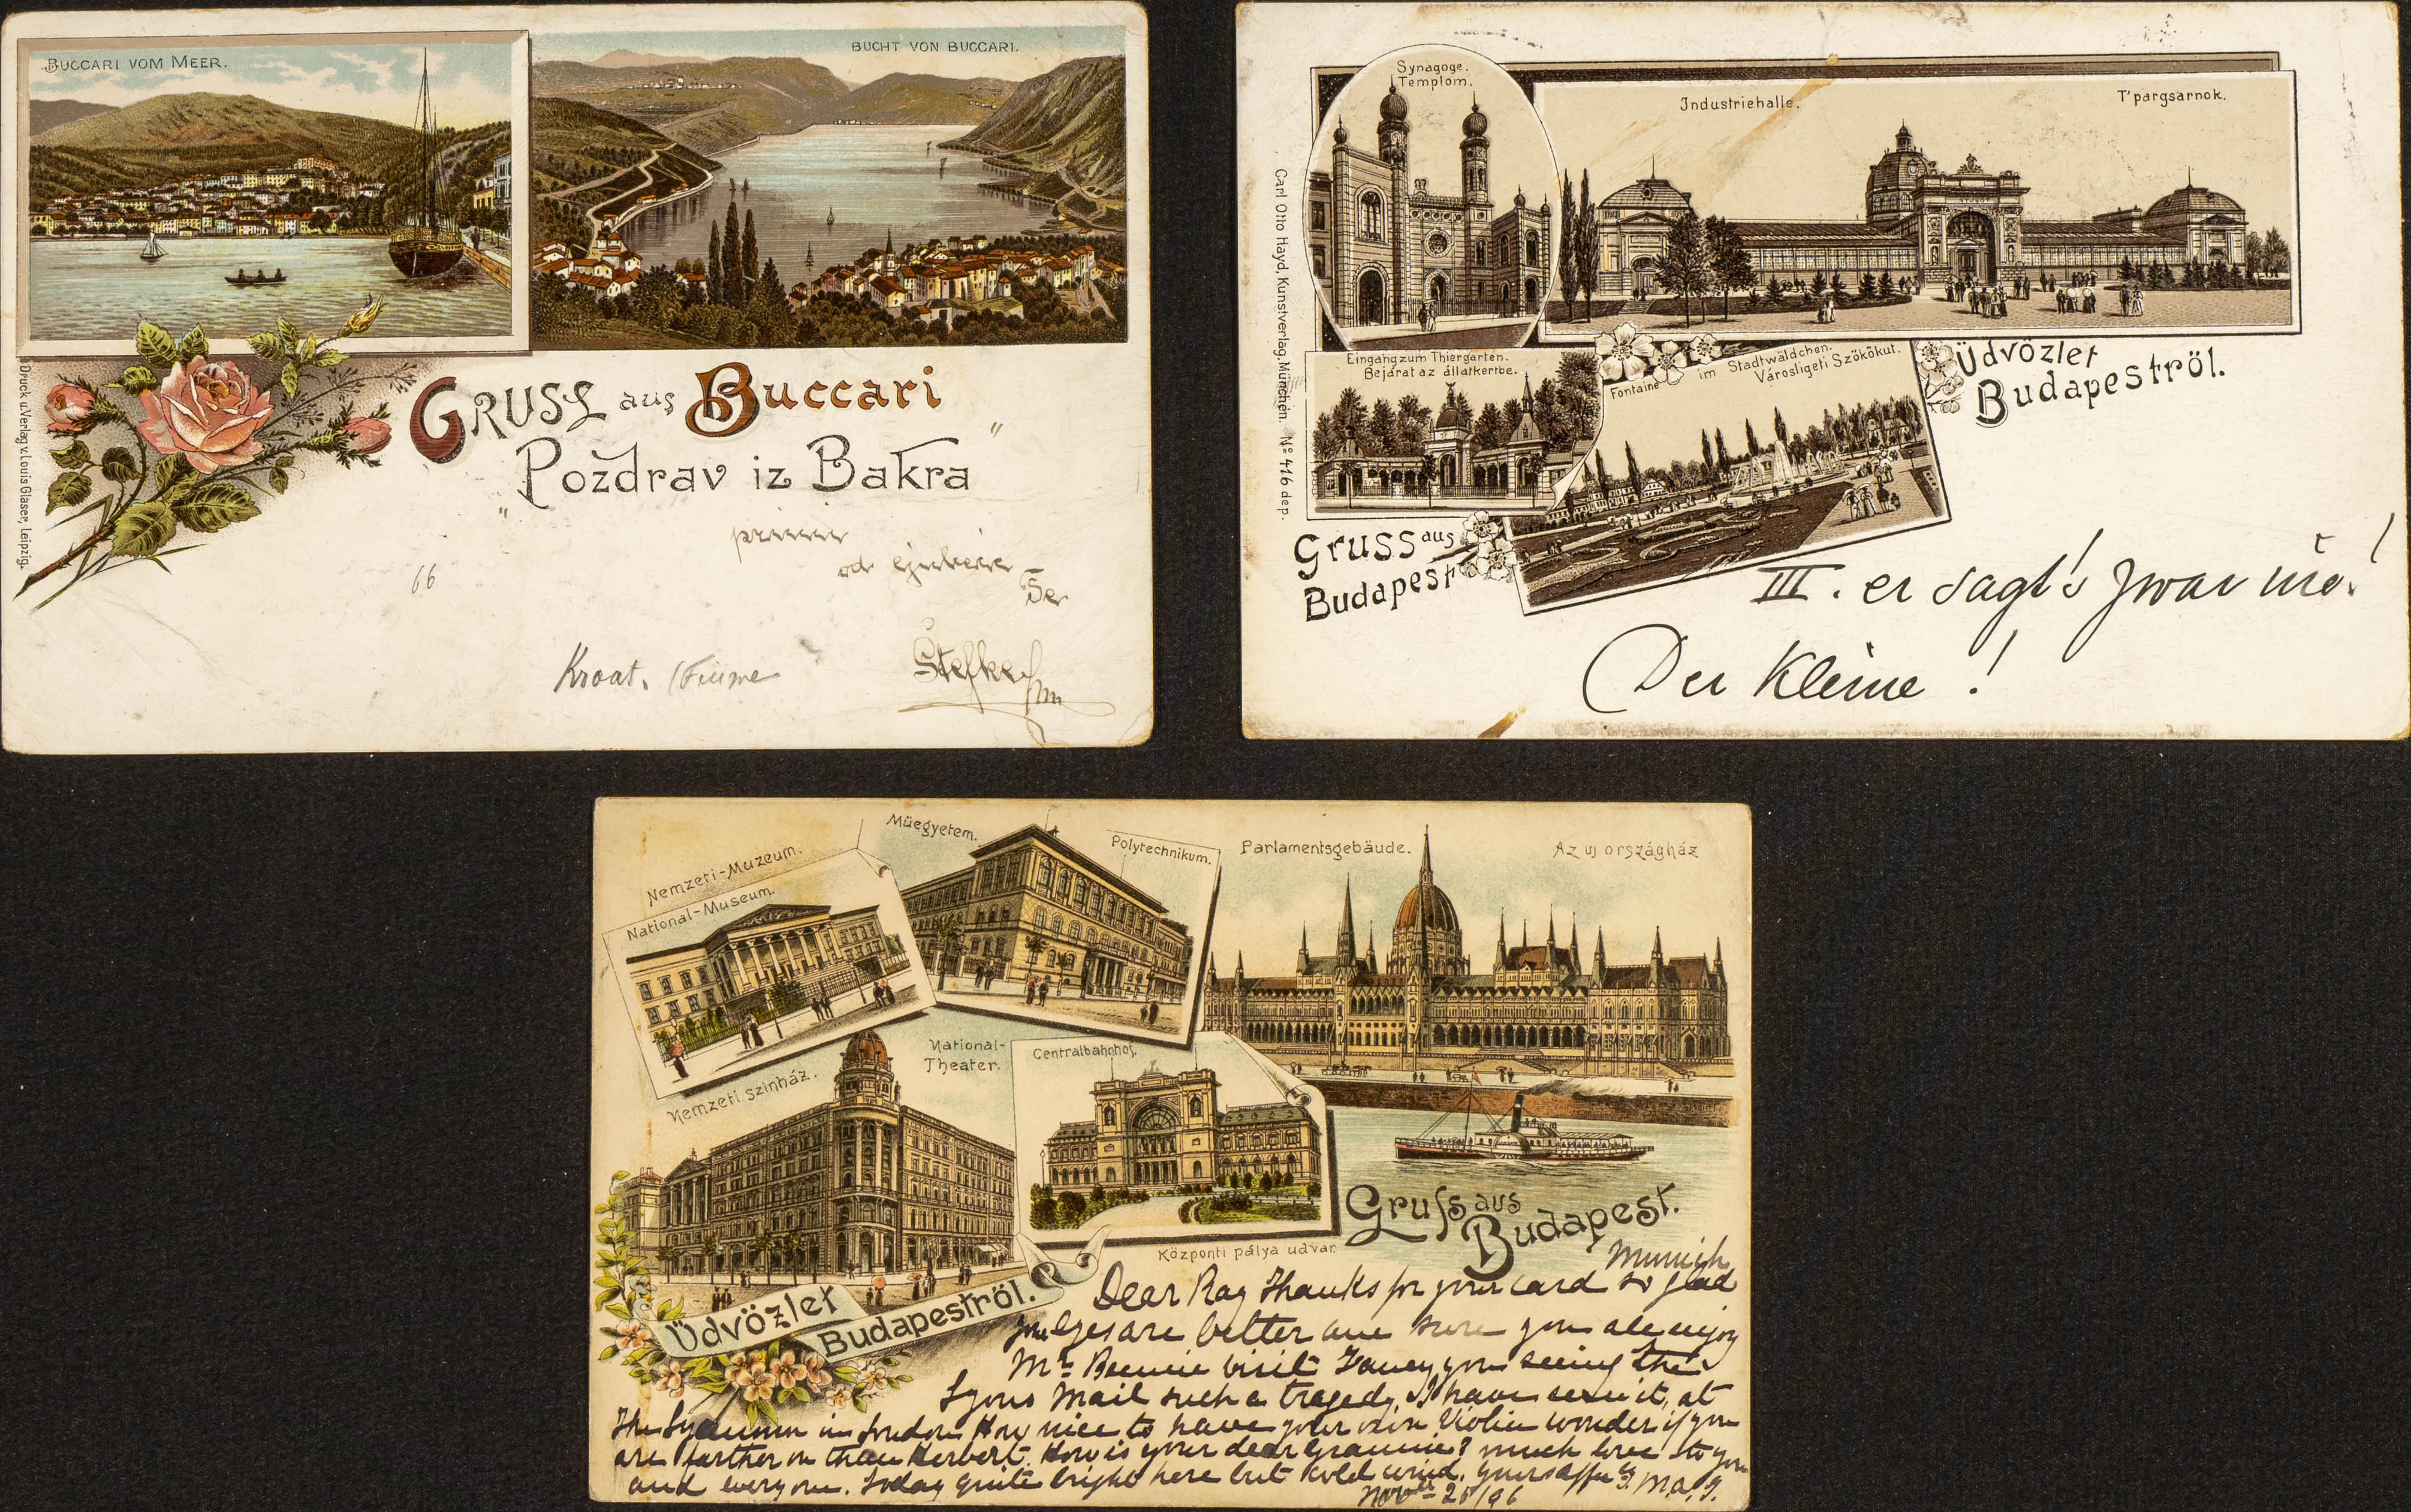 BUCCARI VOM MEER.
BUCHT VON BUCCARI.
GRUSS aus Buccari
"Pozdrav iz Bakra"
66
Kroat. (Fiume
Druck u. Verlag v. Louis Glaser, Leipzig.
Synagoge.
Templom.
Industriehalle.
T'pargsarnok.
Carl Otto Hayd, Kunstverlag, München. No 416 dep.
Eingang zum Thiergarten.
Bejárat az állatkertbe.
Fontaine im Stadtwäldchen.
Városligeti Szökökut.
Üdvözlet
Budapeströl.
Gruss aus
Budapest
III. er sagt's zwar nie!
Der Kleine!
Nemzeti-Muzeum.
National-Museum.
Müegyetem.
Polytechnikum.
Parlamentsgebäude.
Az uj országház
Nemzeti szinház.
National-
Theater.
Centralbahnhof.
Központi pálya udvar.
Gruss aus
Budapest.
Üdvözlet
Budapeströl.
Munich
Dear Ray Thanks for your card so glad
your Eyes are better am sure you all enjoy
Mr visit Fancy you seeing the
Lyons Mail such a tragedy, I have seen it, at
The Lyceum in London How nice to have your own Violin wonder if you
are farther on than Herbert. How is your dear Grannie? much love to you
and everyone. Today quite bright here but cold wind. Yours
Novber 25/96